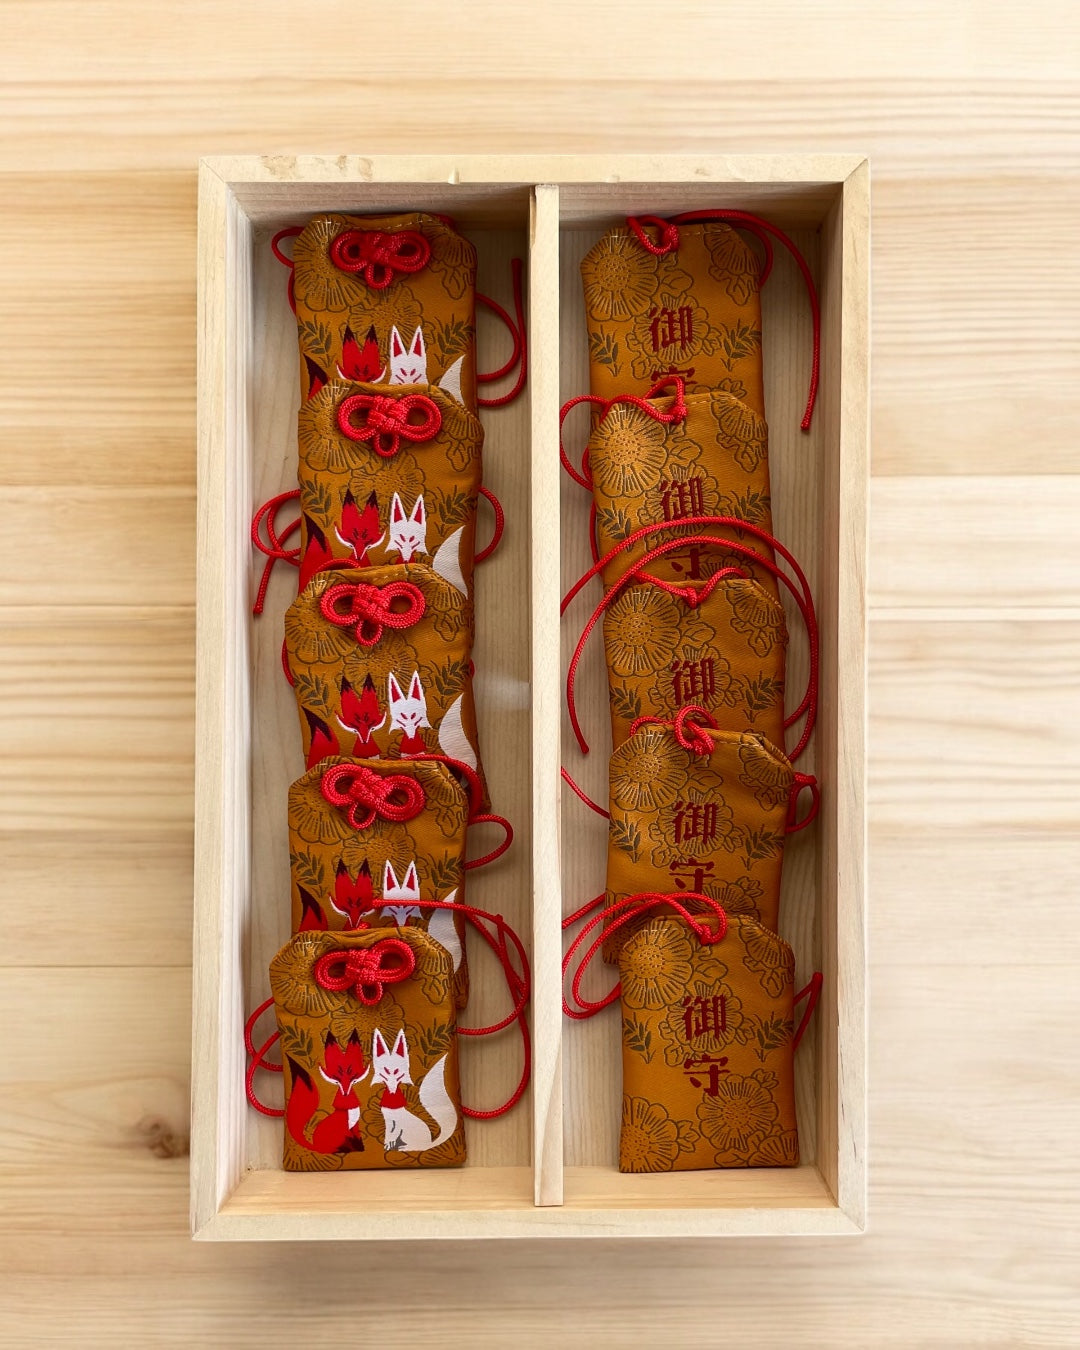 御守
御守
御
御守
御守